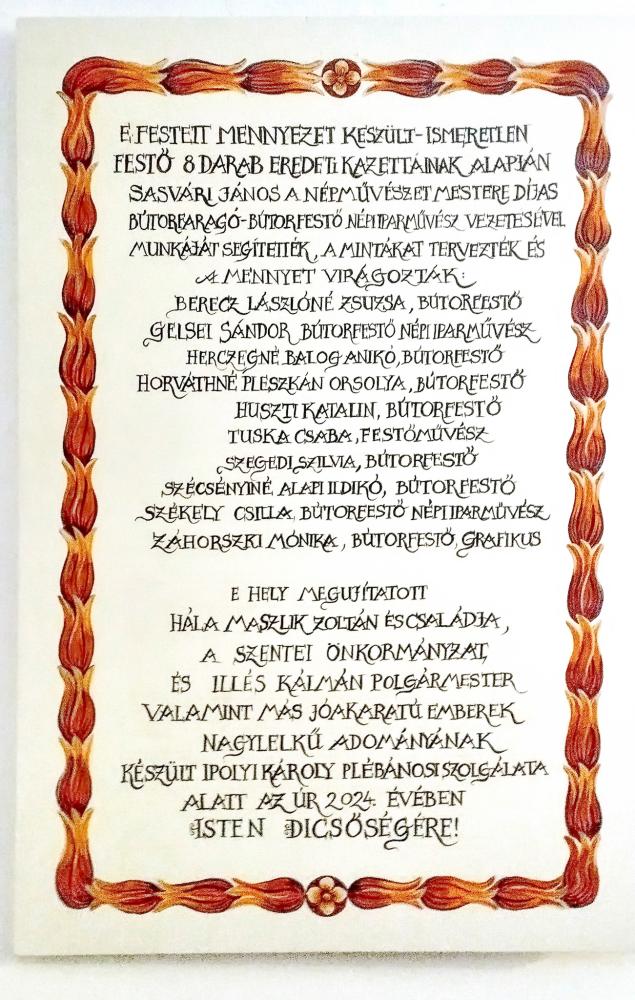 E FESTETT MENNYEZET KÉSZÜLT-ISMERETLEN
FESTŐ 8 DARAB EREDETI KAZETTÁINAK ALAPJÁN
SASVÁRI JÁNOS A NÉPMŰVÉSZET MESTERE DÍJAS
BÚTORFARAGÓ-BÚTORFESTŐ NÉPI IPARMŰVÉSZ VEZETÉSÉVEL
MUNKÁJÁT SEGÍTETTÉK, A MINTÁKAT TERVEZTÉK ÉS
A MENNYET VIRÁGOZTÁK:
BERECZ LÁSZLÓNÉ ZSUZSA, BÚTORFESTŐ
GELSEI SÁNDOR BÚTORFESTŐ NÉPI IPARMŰVÉSZ
HERCZEGNÉ BALOG ANIKÓ, BÚTORFESTŐ
HORVÁTHNÉ PLESZKÁN ORSOLYA, BÚTORFESTŐ
HUSZTI KATALIN, BÚTORFESTŐ
TUSKA CSABA, FESTŐMŰVÉSZ
SZEGEDI SZILVIA, BÚTORFESTŐ
SZÉCSÉNYINÉ ALAPI ILDIKÓ, BÚTORFESTŐ
SZÉKELY CSILLA, BÚTORFESTŐ NÉPI IPARMŰVÉSZ
ZÁHORSZKI MÓNIKA, BÚTORFESTŐ, GRAFIKUS
E HELY MEGUJÍTATOTT
HÁLA MASZLIK ZOLTÁN ÉS CSALÁDJA,
A SZENTEI ÖNKORMÁNYZAT,
ÉS ILLÉS KÁLMÁN POLGÁRMESTER
VALAMINT MÁS JÓAKARATÚ EMBEREK
NAGYLELKŰ ADOMÁNYÁNAK
KÉSZÜLT IPOLYI KÁROLY PLÉBÁNOSI SZOLGÁLATA
ALATT AZ ÚR 2024. ÉVÉBEN
ISTEN DICSŐSÉGÉRE!